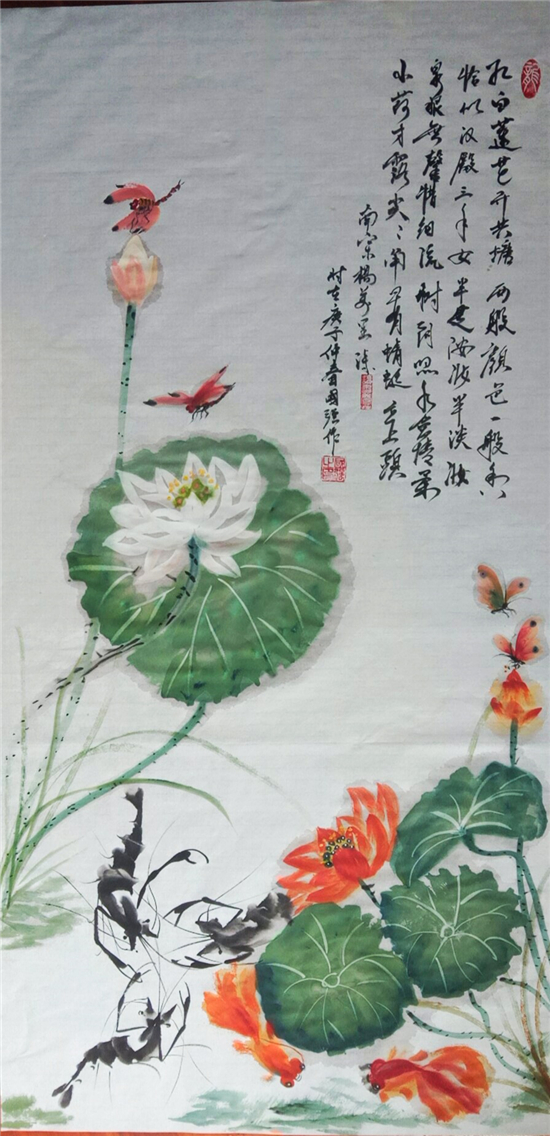 龍
红白莲花开共塘 两般颜色一般香
恰似汉殿三千女 半是浓妆半淡妆
泉眼无声惜细流 树阴照水爱晴柔
小荷才露尖〻角 早有蜻蜓立上头
南宋杨万里诗
时在庚子仲春国强作